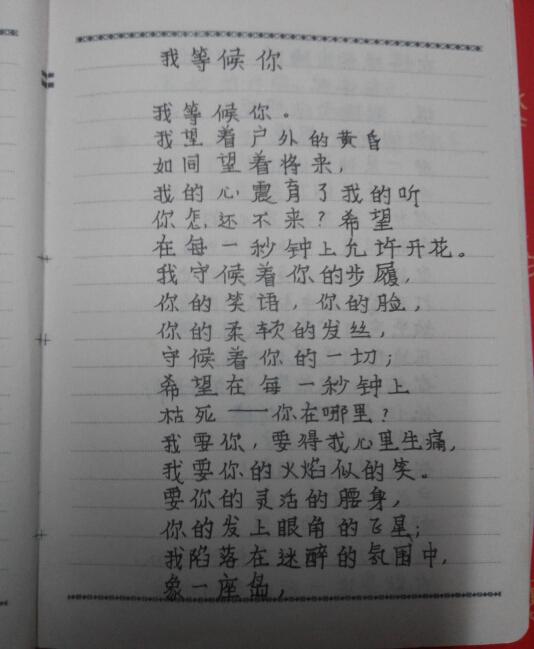 我等候你
我等候你。
我望着户外的黄昏
如同望着将来，
我的心震育了我的听
你怎还不来？希望
在每一秒钟上允许开花。
我守候着你的步履，
你的笑语，你的脸，
你的柔软的发丝，
守候着你的一切；
希望在每一秒钟上
枯死——你在哪里？
我要你，要得我心里生痛，
我要你的火焰似的笑。
要你的灵活的腰身，
你的发上眼角的飞星；
我陷落在迷醉的氛围中，
象一座岛，